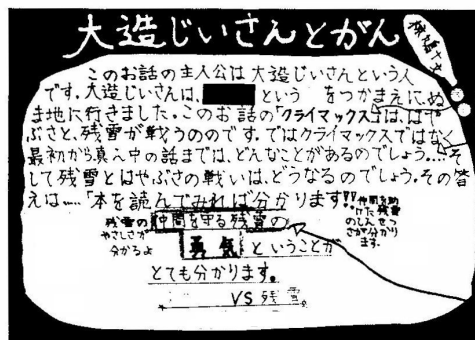 大造じいさんとがん
このお話の主人公は大造じいさんという人
です。大造じいさんは、という をつかまえに、ぬ
ま地に行きました。このお話の「クライマックス」は、はや
ぶさと、残雪が戦うのです。ではクライマックスではなく
最初から真ん中の話までは、どんなことがあるのでしょう…そ
して残雪とはやぶさの戦いは、どうなるのでしょう。その答
えは…「本を読んでみれば分かります!!
残雪の
やさしさが
分かるよ
仲間を守る残雪の
勇気ということが
とても分かります。
仲間を助
けた残雪
のしんせつ
さが分かり
ます。
VS 残雪。